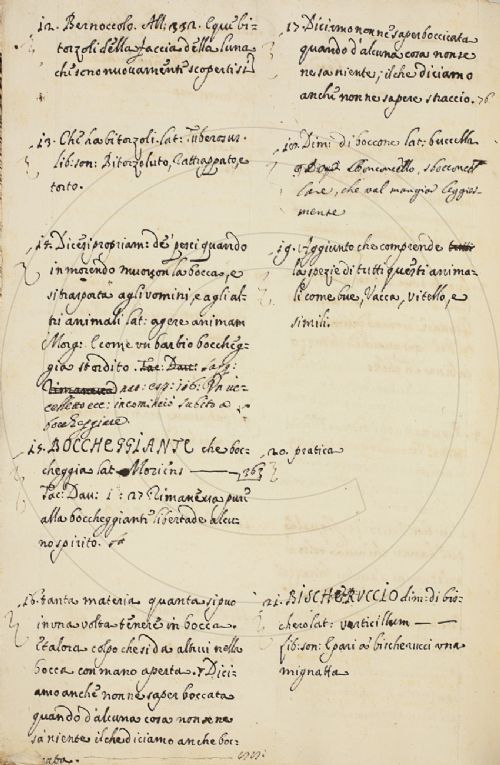 12. Bernoccolo. All: 332. E que' bi-
torzoli della faccia della luna
che sono nuovamente scopertisi
13. Che ha bitorzoli. lat: tuberosus.
lib: son: Bitorzoluto, rattrappato, e
torto.
14. Dicesi propriam: de' pesci quando
in morendo muovon la bocca, e
si traspota agli vomini, e agli al-
tri animali lat: agere animam
Morg: E come un barbio bocheg-
gia stordito. Tac: Dau:
nov: esp: 106: Un uc-
celletto ecc: incominciò subito a
boccheggiare
15. BOCCHEGGIANTE che boc-
cheggia lat: Moriens —— 263
Tac: Dau: 1: 27 Rimaneua pure
alla boccheggiante libertade alcu-
no spirito.
16. tanta materia quanta si puo
in una volta tenere in bocca.
E talora colpo che si dà altrui nella
bocca con mano aperta. Dici-
amo anche non ne saper boccata
quando d'alcuna cosa non se ne
sà niente il che diciamo anche boc-
cata.
17. Dicesi non ne saper boccicata
quando d'alcuna cosa non se
ne sa niente; il che diciamo
anche non ne sapere straccio. 76
18. Dim: di boccone lat: buccella
Bonconcello, sbocconcel-
lare, che val mangiar leggier-
mente
19. Aggiunto che comprende tutti
la spezie di tutti questi anima-
li come bue, Vacca, vitello, e
simili.
20. pratica
21. BISCHERUCCIO dim: di bis-
chero lat: verticillum ——
lib: son: E pari a' bischerucci una
mignatta